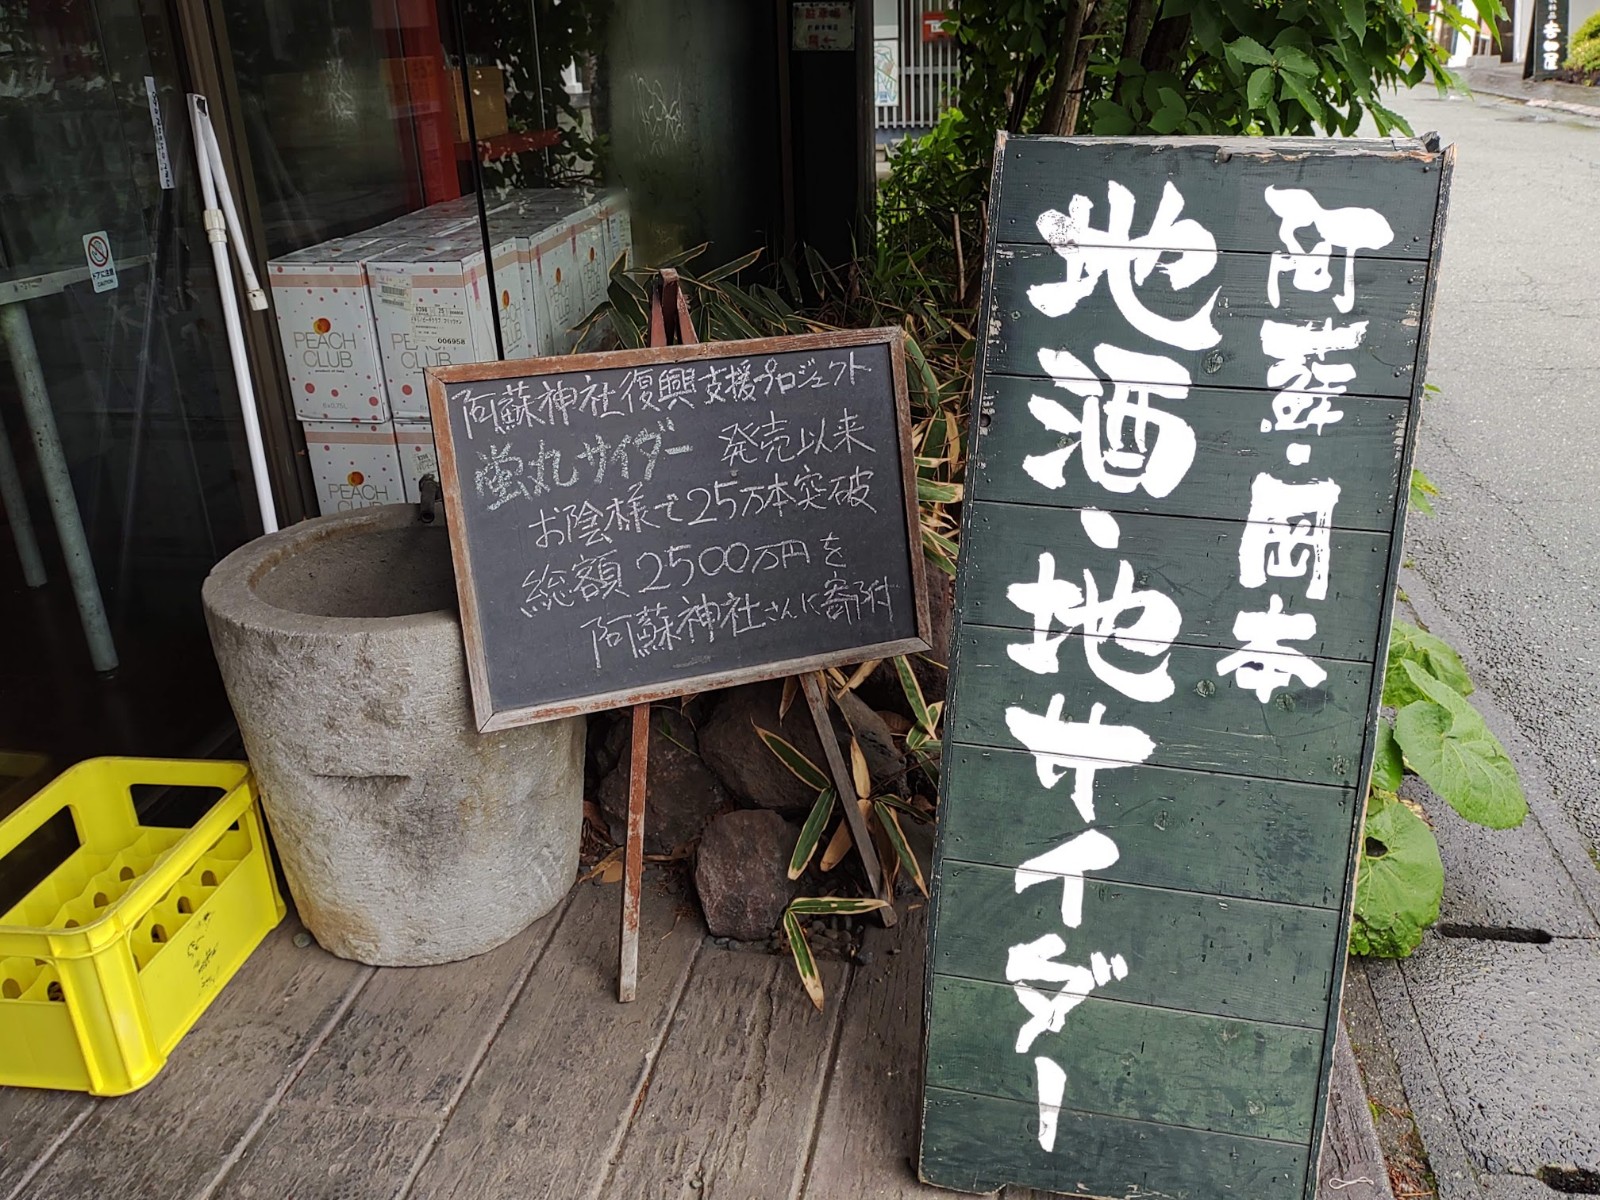 阿蘇・岡本
地酒・地サイダー
阿蘇神社復興支援プロジェクト
蛍丸サイダー 発売以来
お陰様で25万本突破
総額2500万円を
阿蘇神社さんに寄附
PEACH
CLUB
PEACH
CLUB
006958
PEACH
ドアに注意
CAUTION